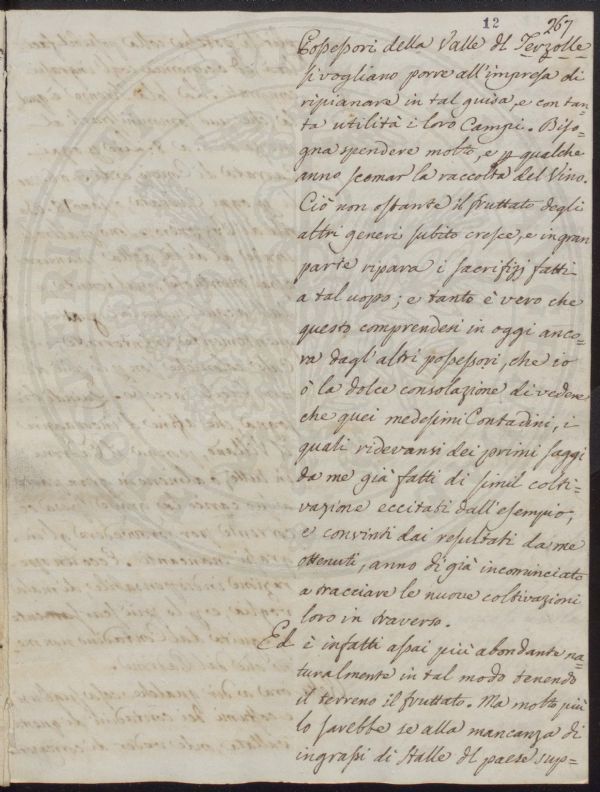 12 267
Possessori della Valle dl Terzolle
si vogliano porre all'impresa di
ripianare in tal guisa, e con tan-
ta utilità i loro Campi. Biso-
gna spendere molto, e p qualche
anno scemar la raccolta del Vino.
Ciò non ostante il fruttato degli
altri generi subito cresce, e in gran
parte ripara i sacrifizj fatti
a tal uopo; e tanto è vero che
questo comprendesi in oggi anco-
ra dagl'altri possessori, che io
ò la dolce consolazione di vedere
che quei medesimi Contadini, i
quali ridevansi dei primi saggi
da me già fatti di simil colti-
vazione eccitati dall'esempio,
e convinti dai resultati da me
ottenuti, anno di già incominciato
a tracciare le nuove coltivazioni
loro in traverso.
Ed è infatti assai più abondante na-
turalmente in tal modo tenendo
il terreno il fruttato. Ma molto più
lo sarebbe se alla mancanza di
ingrassi di stalle dl paese sup-